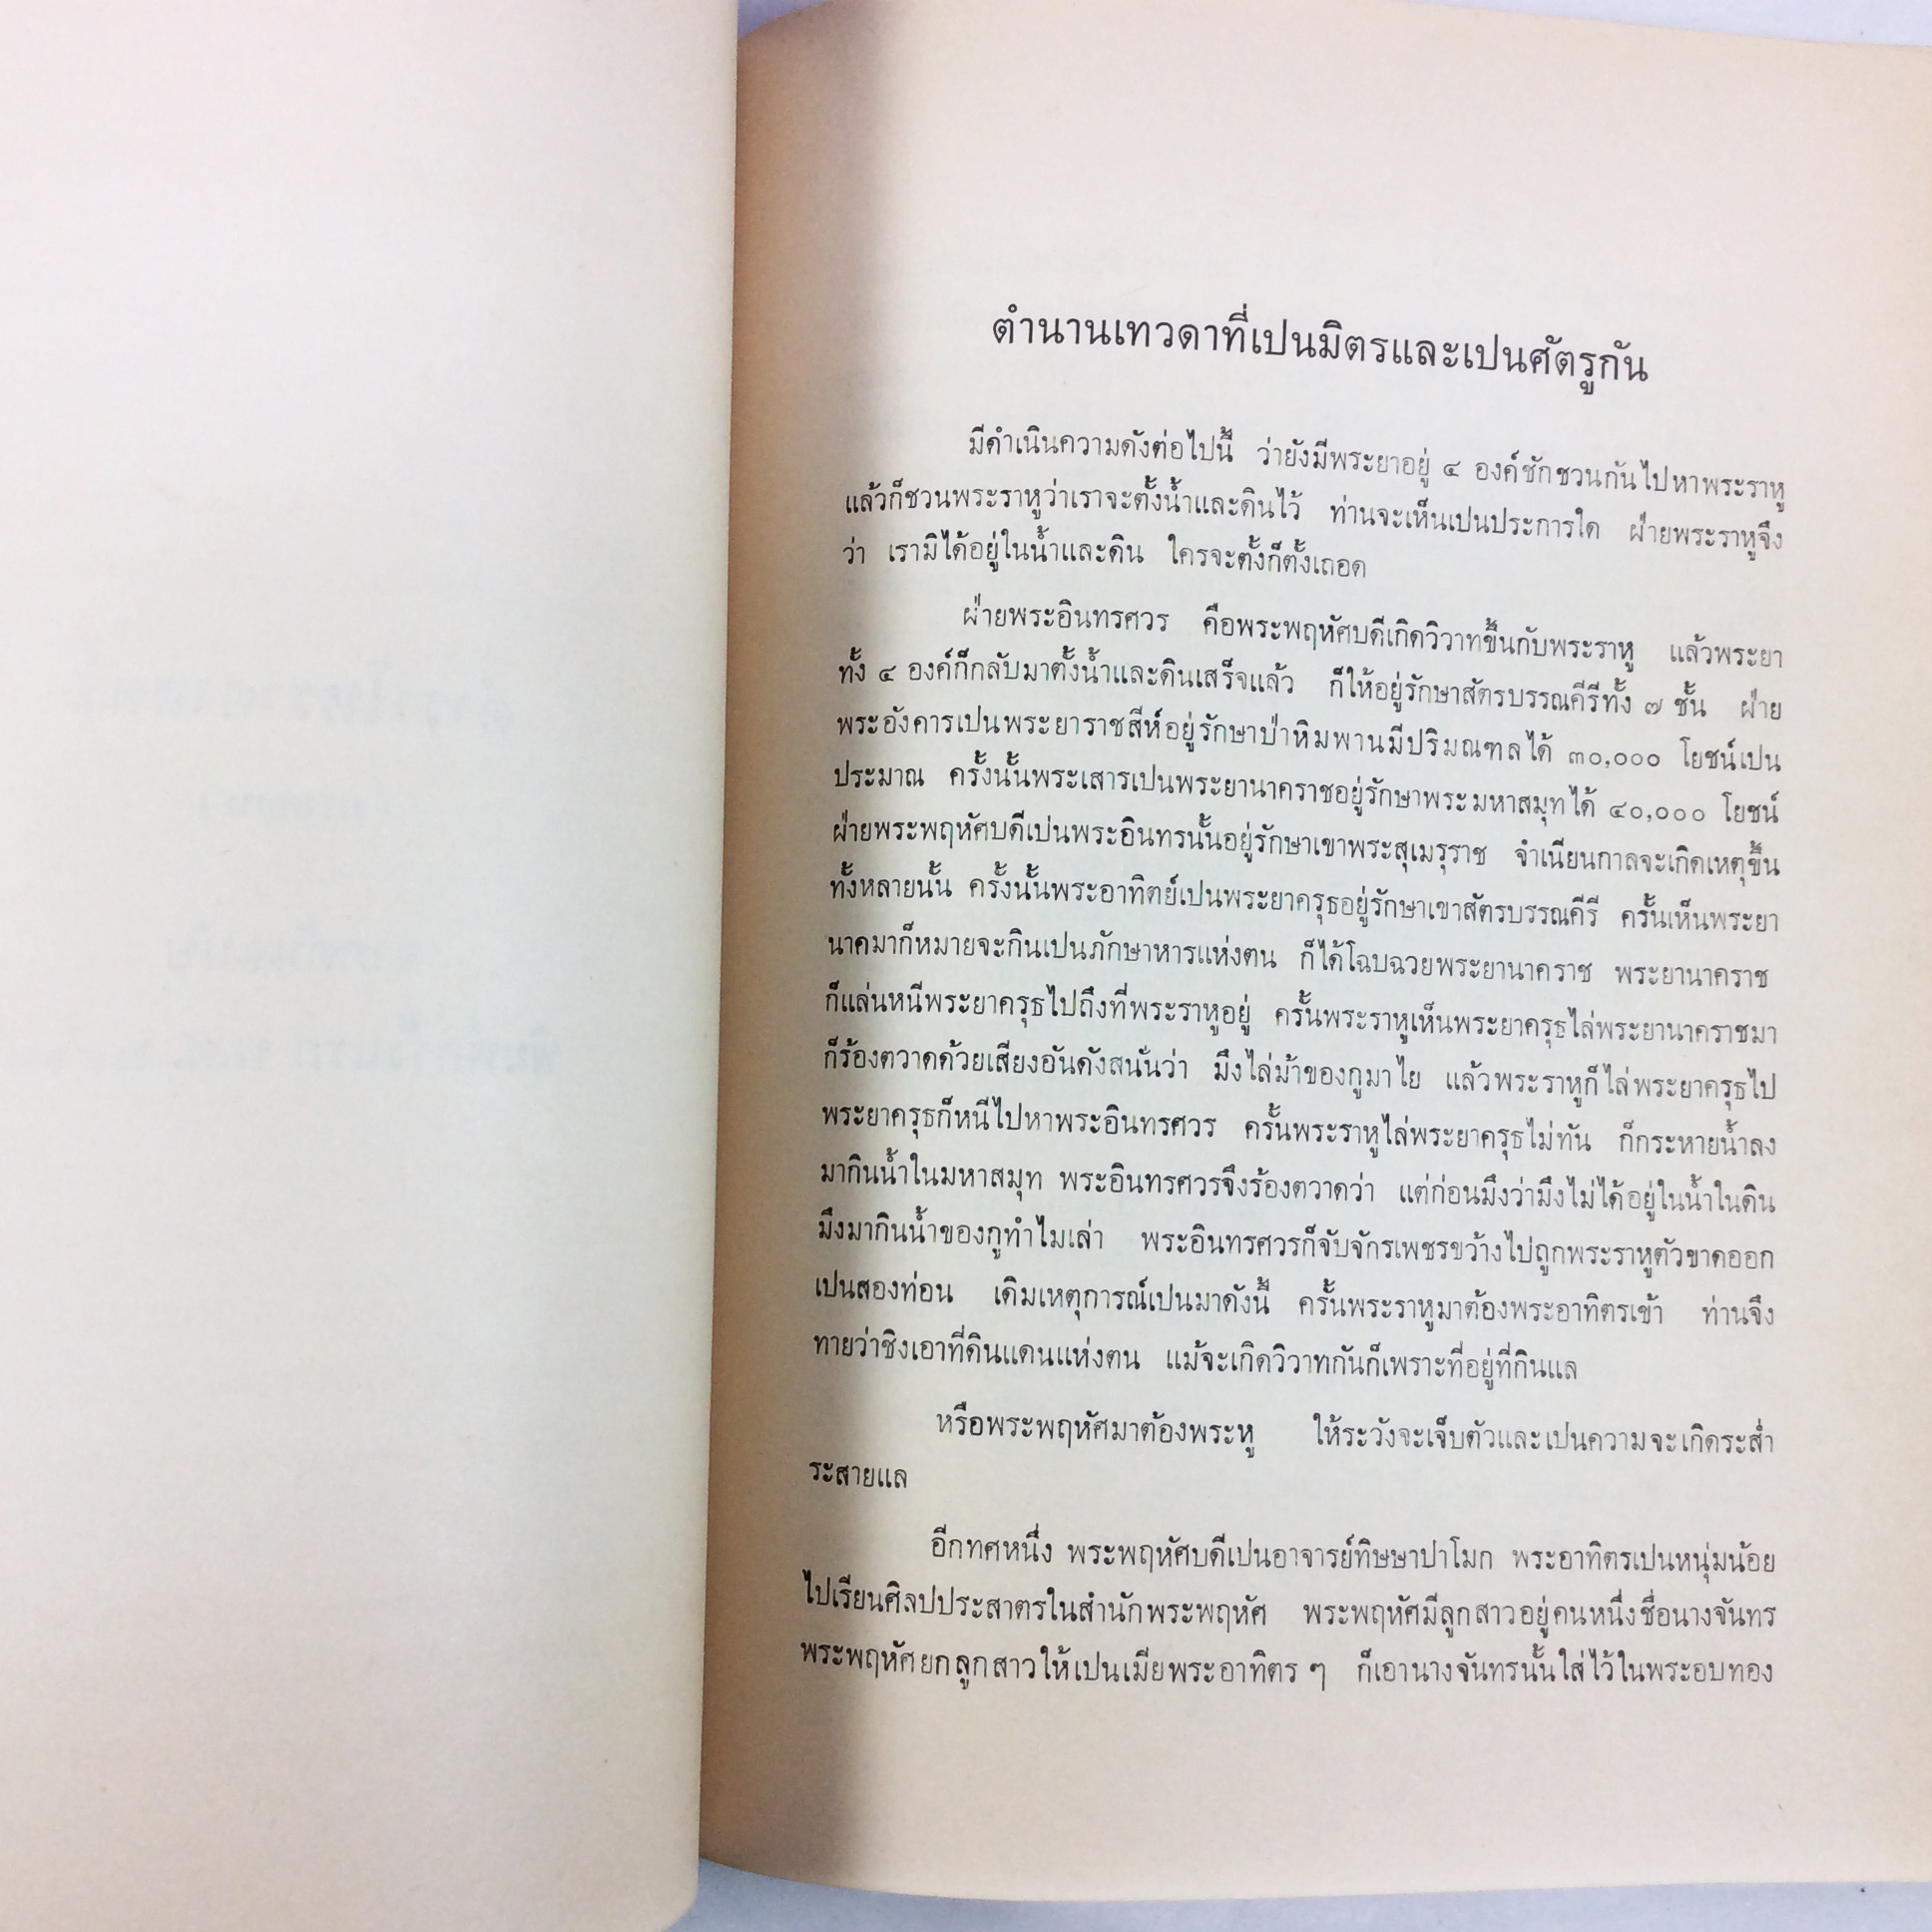 ตำนานเทวดาที่เปนมิตรและเปนศัตรูกัน
มีดำเนินความดังต่อไปนี้ ว่ายังมีพระยาอยู่ ๔ องค์ชักชวนกันไปหาพระราหู
แล้วก็ชวนพระราหูว่าเราจะตั้งน้ำและดินไว้ ท่านจะเห็นเปนประการใด ฝ่ายพระราหูจึง
ว่า เรามิได้อยู่ในน้ำและดิน ใครจะตั้งก็ตั้งเถอด
ฝ่ายพระอินทรศวร คือพระพฤหัศบดีเกิดวิวาทขึ้นกับพระราหู แล้วพระยา
ทั้ง ๔ องค์ก็กลับมาตั้งน้ำและดินเสร็จแล้ว ก็ให้อยู่รักษาสัตรบรรณคีรีทั้ง ๗ ชั้น ฝ่าย
พระอังคารเปนพระยาราชสีห์อยู่รักษาป่าหิมพานมีปริมณฑลได้ ๓๐,๐๐๐ โยชน์เปน
ประมาณ ครั้งนั้นพระเสารเปนพระยานาคราชอยู่รักษาพระมหาสมุทได้ ๔๐,๐๐๐ โยชน์
ฝ่ายพระพฤหัศบดีเป่นพระอินทรนั้นอยู่รักษาเขาพระสุเมรุราช จำเนียนกาลจะเกิดเหตุขึ้น
ทั้งหลายนั้น ครั้งนั้นพระอาทิตย์เปนพระยาครุธอยู่รักษาเขาสัตรบรรณคีรี ครั้นเห็นพระยา
นาคมาก็หมายจะกินเปนภักษาหารแห่งตน ก็ได้โฉบฉวยพระยานาคราช พระยานาคราช
ก็แล่นหนีพระยาครุธไปถึงที่พระราหูอยู่ ครั้นพระราหูเห็นพระยาครุธไล่พระยานาคราชมา
ก็ร้องตวาดด้วยเสียงอันดังสนั่นว่า มึงไล่ม้าของกูมาไย แล้วพระราหูก็ไล่พระยาครุธไป
พระยาครุธก็หนีไปหาพระอินทรศวร ครั้นพระราหูไล่พระยาครุธไม่ทัน ก็กระหายน้ำลง
มากินน้ำในมหาสมุท พระอินทรศวรจึงร้องตวาดว่า แต่ก่อนมึงว่ามึงไม่ได้อยู่ในน้ำในดิน
มึงมากินน้ำของกูทำไมเล่า พระอินทรศวรก็จับจักรเพชรขว้างไปถูกพระราหูตัวขาดออก
เปนสองท่อน เดิมเหตุการณ์เปนมาดังนี้ ครั้นพระราหูมาต้องพระอาทิตรเข้า ท่านจึง
ทายว่าชิงเอาที่ดินแดนแห่งตน แม้จะเกิดวิวาทกันก็เพราะที่อยู่ที่กินแล
หรือพระพฤหัศมาต้องพระหู ให้ระวังจะเจ็บตัวและเปนความจะเกิดระส่ำ
ระสายแล
อีกทศหนึ่ง พระพฤหัศบดีเปนอาจารย์ทิษษาปาโมก พระอาทิตรเปนหนุ่มน้อย
ไปเรียนศิลปประสาตรในสำนักพระพฤหัศ พระพฤหัศมีลูกสาวอยู่คนหนึ่งชื่อนางจันทร
พระพฤหัศยกลูกสาวให้เปนเมียพระอาทิตร ๆ ก็เอานางจันทรนั้นใส่ไว้ในพระอบทอง